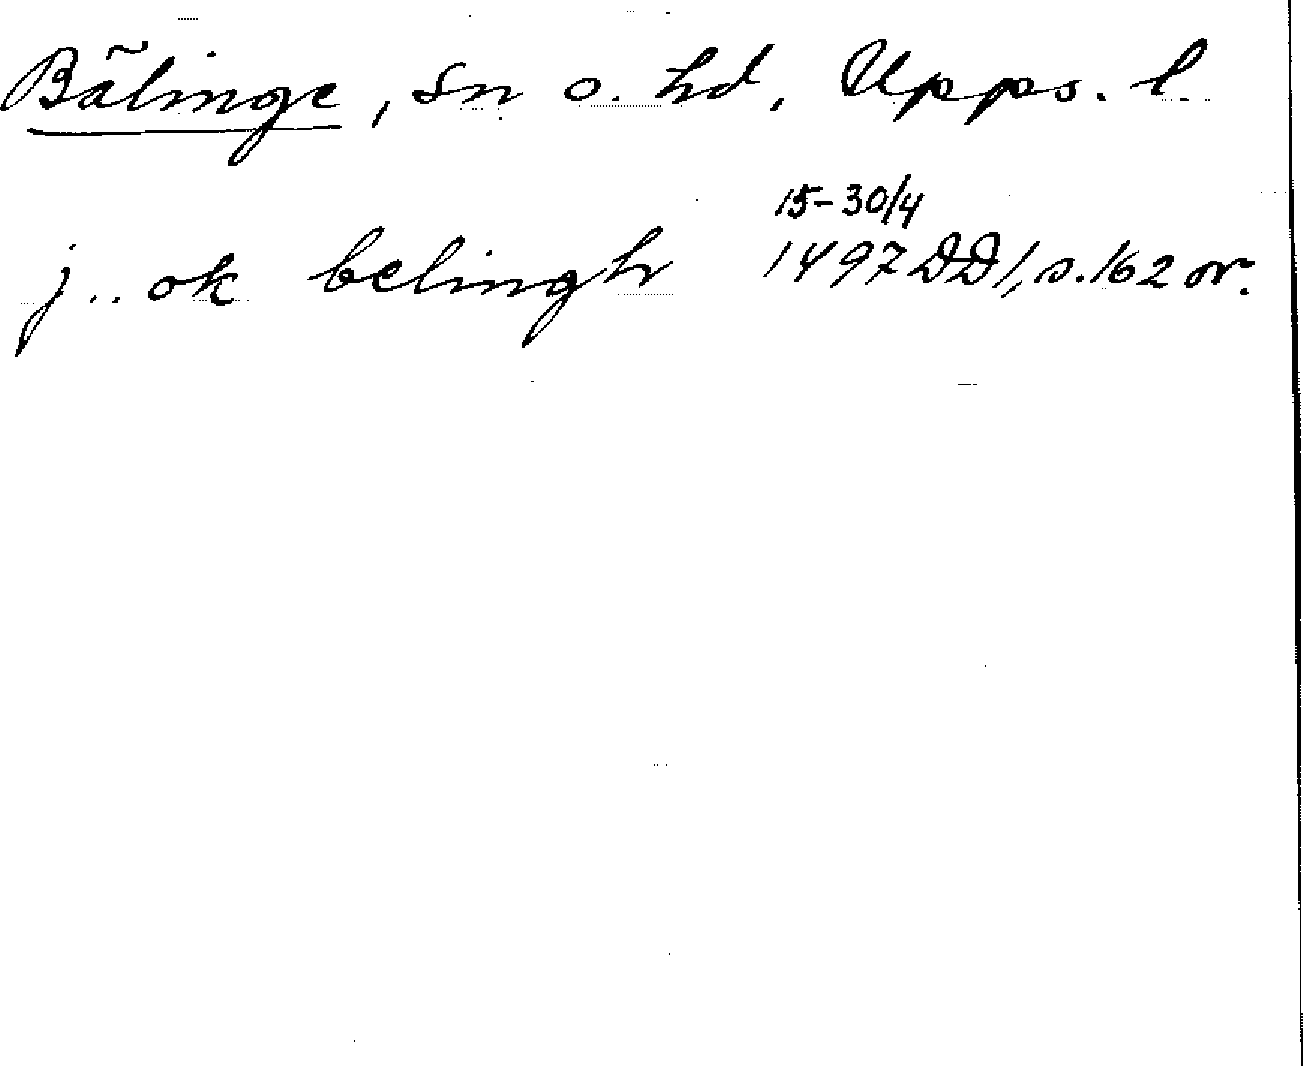 Bälinge, sn o. hd, Upps. l
15-30/4
j.. ok belingh 1497 DD 1, s. 162 or.